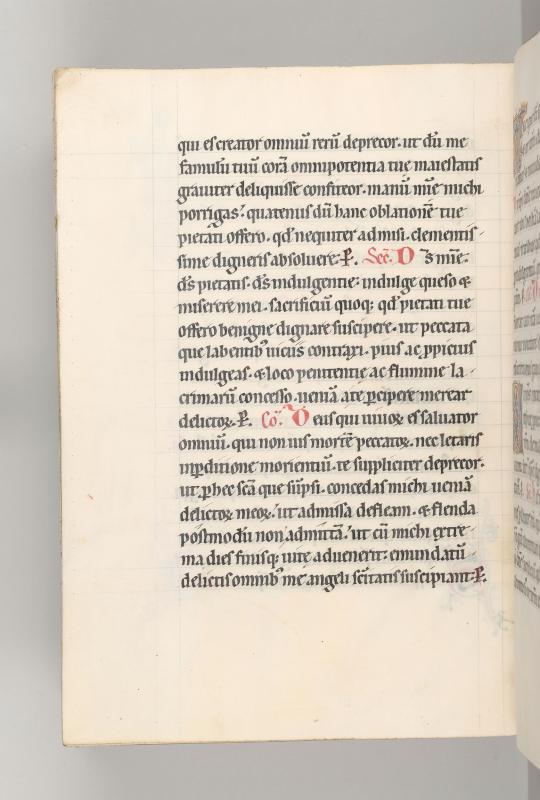 qui es creator omniū rerū deprecor. ut dū me
famulū tuū corā omnipotentia tue maiestatis
grauiter deliquisse confiteor. manū mīe michi
porrigas. quatenus dū hanc oblationē tue
pietati offero. qd̄ nequiter admisi. clementis-
sime digneris absoluere. P̄. Sec̄. D s̄ mīe.
ds̄ pietatis. ds̄ indulgentie. indulge queso &
miserere mei. sacrificiū quoq; qd̄ pietati tue
offero benigne dignare suscipere. ut peccata
que labentibꝰ uiciis contraxi. pius ac ꝓpicius
indulgeas. & loco penitentie ac flumine la-
crimarū concesso. ueniā a te ꝑcipere merear
delictoꝝ. P̄. Co. D eus qui uiuoꝝ es saluator
omniū. qui non uis mortē peccatoꝝ. nec letaris
in ꝑditione morientiū. te suppliciter deprecor.
ut ꝑ hec scā que sūpsi. concedas michi ueniā
delictoꝝ meoꝝ. ut admissa defleam. & flenda
postmodū non admittā. ut cū michi extre-
ma dies finisq; uite aduenerit. emundatū
delictis omnibꝰ me angeli scītatis suscipiant. P̄.